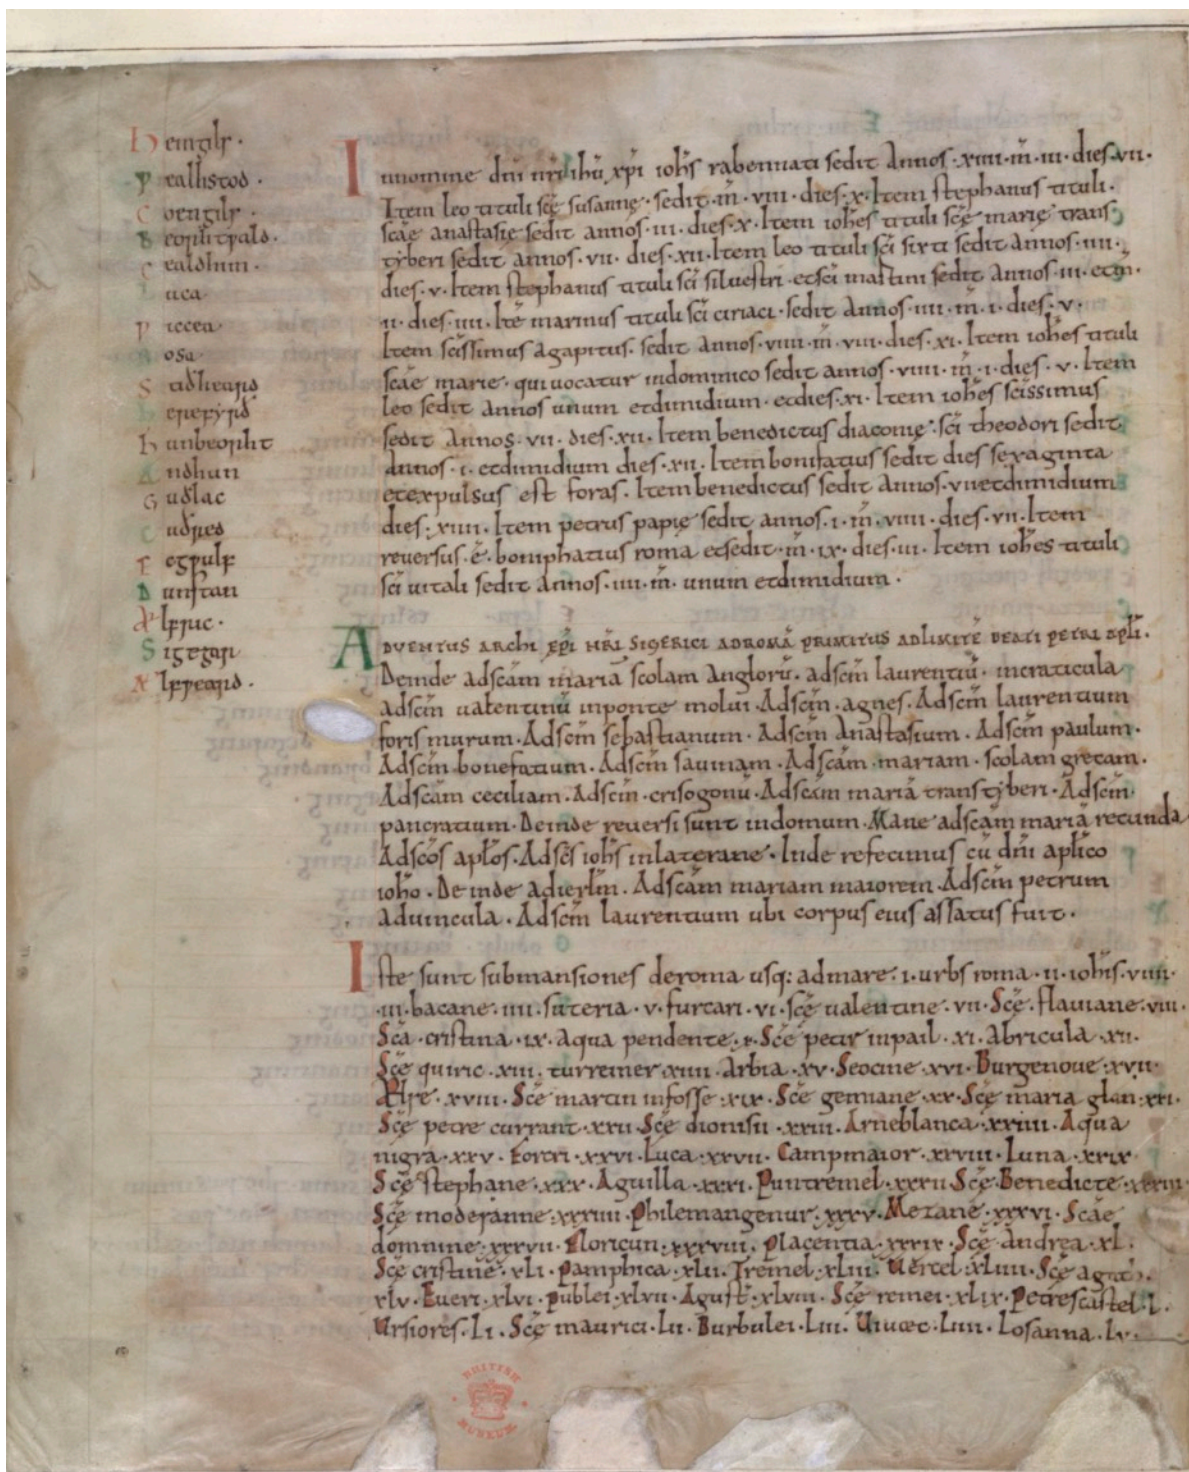 Hemgils·
ƿealhstod·
Coengils·
Beorhtƿald·
Cealdhun·
Luca
ƿiccea
Bosa
Stidheard
Hereferð
Hunbeorht
Andhun
Guðlac
Cuðred
Ecgƿulf
Dunstan
Ælfric·
Sigegar
Ælfƿeard·
Innomine dn̄i nr̄i ihū xp̄i ioh̄s rabennati sedit Annos·xiiii·m̄·iii·dies·vii·
Item leo tituli sc̄ę susannę·sedit·m̄·viii·dies·x·Item stephanus tituli·
scāe anastasię sedit annos·iii·dies·x·Item ioh̄es tituli sc̄ę marię trans
tyberi sedit annos·vii·dies·xii·Item leo tituli sc̄i sixti sedit annos·iiii·
dies·v·Item stephanus tituli sc̄i siluestri·etsc̄i mastini sedit Annos·iii·etm̄·
ii·dies·iiii·Itē marinus tituli sc̄i ciriaci·sedit Annos·iiii·m̄·i·dies·v·
Item sc̄issimus Agapitus·sedit annos·viiii·m̄·viii·dies·xi·Item ioh̄es tituli
scāe marie·qui uocatur indominico sedit annos·viiii·m̄·i·dies·v·Item
leo sedit annos unum etdimidium·etdies·xi·Item ioh̄es sc̄issimus
sedit Annos·vii·dies·xii·Item benedictus diaconię·sc̄i theodori sedit
Annos·i·etdimidium dies·xii·Item bonifatius sedit dies sexaginta
etexpulsus est foras·Item benedictus sedit Annos·viietdimidium
dies·xiiii·Item petrus papię sedit annos·i·m̄·viiii·dies·vii·Item
reuersus·ē·boniphatius roma etsedit·m̄·ix·dies·iii·Item ioh̄es tituli
sc̄i uitali sedit Annos·iiii·m̄·unum etdimidium·
ADVENTUS ARCHI EP̄I NR̄I SIGERICI ADROMĀ PRIMITUS ADLIMITĒ BEATI PETRI APL̄I·
Deinde adscām mariā scolam Anglorū·adscīn laurentiū·incraticula
adscīn ualentinū inponte molui·Adscīn·agnes·Adscīn laurentium
foris murum·Adscīn sebastianum·Adscīn Anastasium·Adscīn paulum·
Adscīn bonefatium·Adscīn sauinam·Adscām·mariam·scolam grecam·
Adscām ceciliam·Adscīn·crisogonū·Adscām mariā transtyberi·Adscīn·
pancratium·Deinde reuersi sunt indomum·Mane adscām mariā retunda
Adsc̄os apl̄os·Adsc̄s ioh̄s inlaterane·Inde refecimus cū dn̄i apl̄ico
ioh̄o·Deinde adierlm̄·Adscām mariam maiorem·Adscīn petrum
aduincula·Adscīn laurentium ubi corpus eius assatus fuit·
Iste sunt submansiones deroma usq: admare·i·urbs roma·ii·ioh̄is·viiii·
·iii·bacane·iiii·suteria·v·furcari·vi·sc̄ę ualentine·vii·Sc̄ę·flauiane·viii·
Sc̄a·cristina·ix·Aqua pendente·x·Sc̄e petir inpail·xi·Abricula·xii·
Sc̄ę quiric·xiii·turreiner·xiiii·Arbia·xv·Seocine·xvi·Burgenoue·xvii·
Ælse·xviii·Sc̄ę martin infosse·xix·Sc̄ę gemiane·xx·Sc̄ę maria glan·xxi·
Sc̄ę petre currant·xxii·Sc̄ę dionisii·xxiii·Arneblanca·xxiiii·Aqua
nigra·xxv·Forcri·xxvi·Luca·xxvii·Campmaior·xxviii·Luna·xxix·
Sc̄ę Stephane·xxx·Aguilla·xxxi·Puntremel·xxxii·Sc̄ę·Benedicte·xxxiii·
Sc̄ę moderanne·xxxiiii·Philemangenur·xxxv·Metane·xxxvi·Scāe
domnine·xxxvii·Floricun·xxxviii·Placentia·xxxix·Sc̄ę Andrea·xl·
Sc̄ę cristine·xli·Pamphica·xlii·Tremel·xliii·Uercel·xliiii·Sc̄ę agath·
xlv·Eueri·xlvi·Publei·xlvii·Agust·xlviii·Sc̄ę remei·xlix·Petrescastel·l·
Ursiores·Li·Sc̄ę maurici·Lii·Burbulei·Liii·Uiuæc·Liiii·Losanna·Lv·
BRITISH
MUSEUM